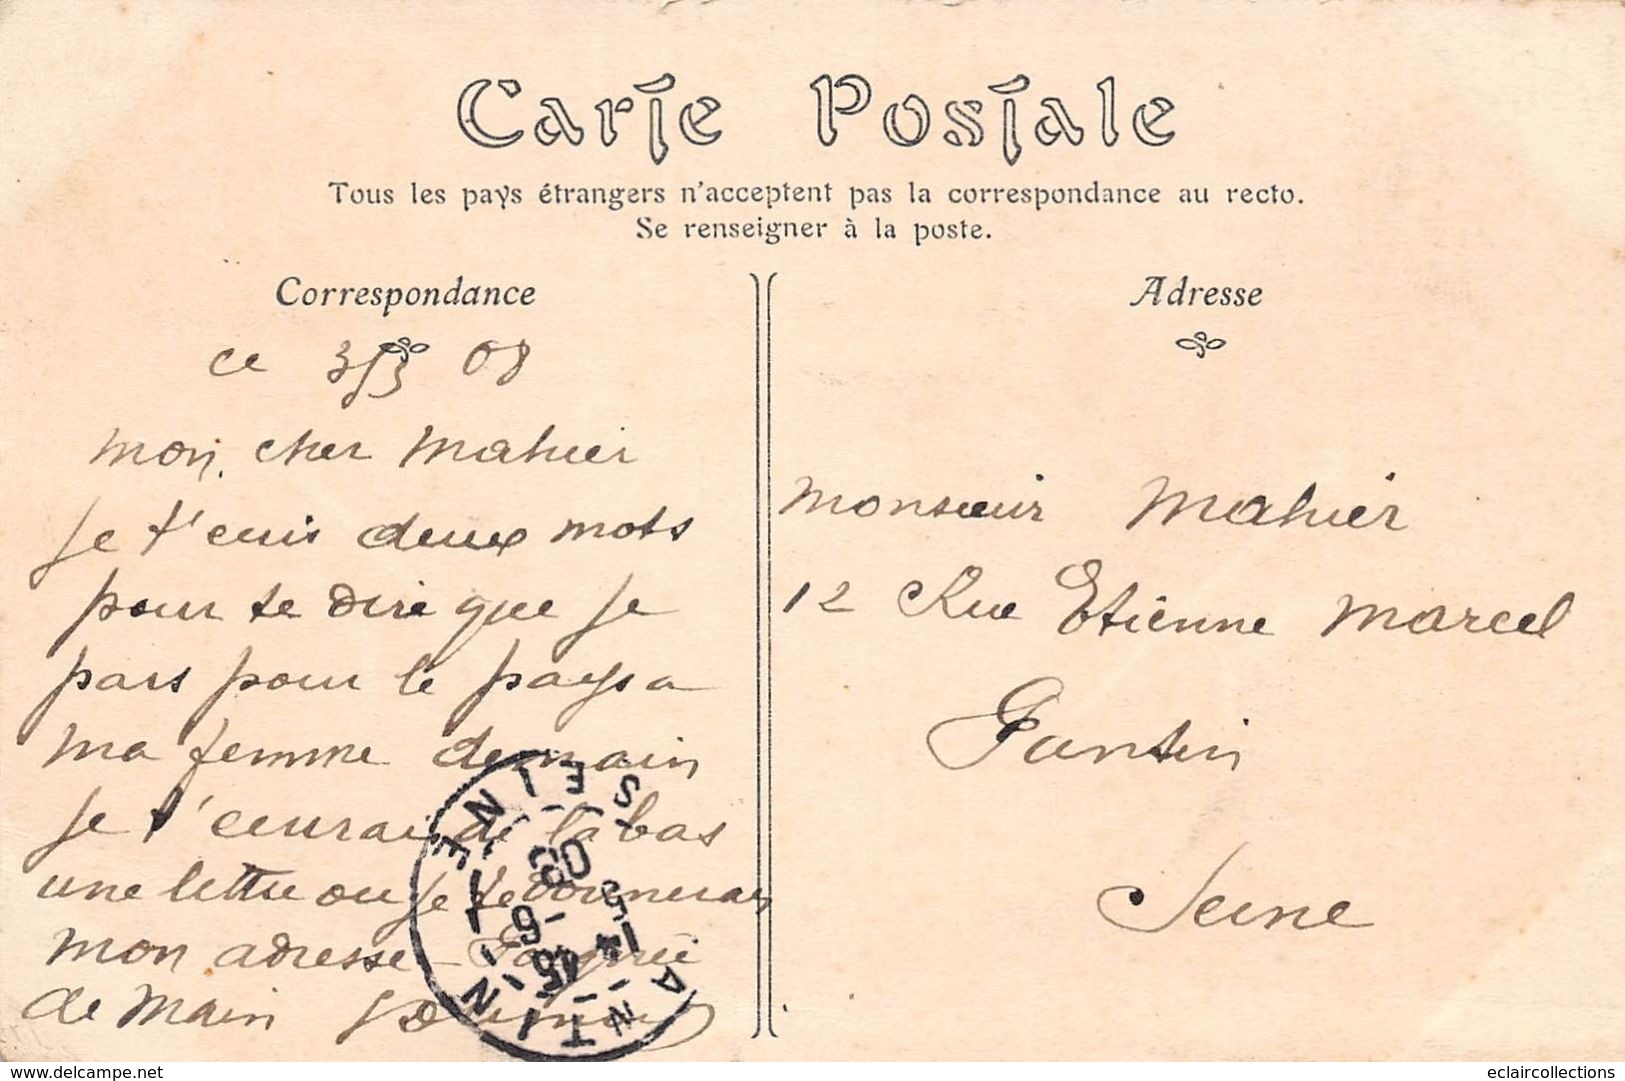 Carte Postale
Tous les pays étrangers n'acceptent pas la correspondance au recto.
Se renseigner à la poste.
Correspondance
ce 3/3 08
mon cher Mahier
Je t'ecris deux mots
pour te dire que je
pars pour le pays a
ma femme demain
Je t' de labas
une lettre ou je te donnerai
mon adresse
de main
Adresse
Monsieur Mahier
12 Rue Etienne Marcel
Pantin
Seine
PANTIN
SEINE
delcampe.net
eclaircollections